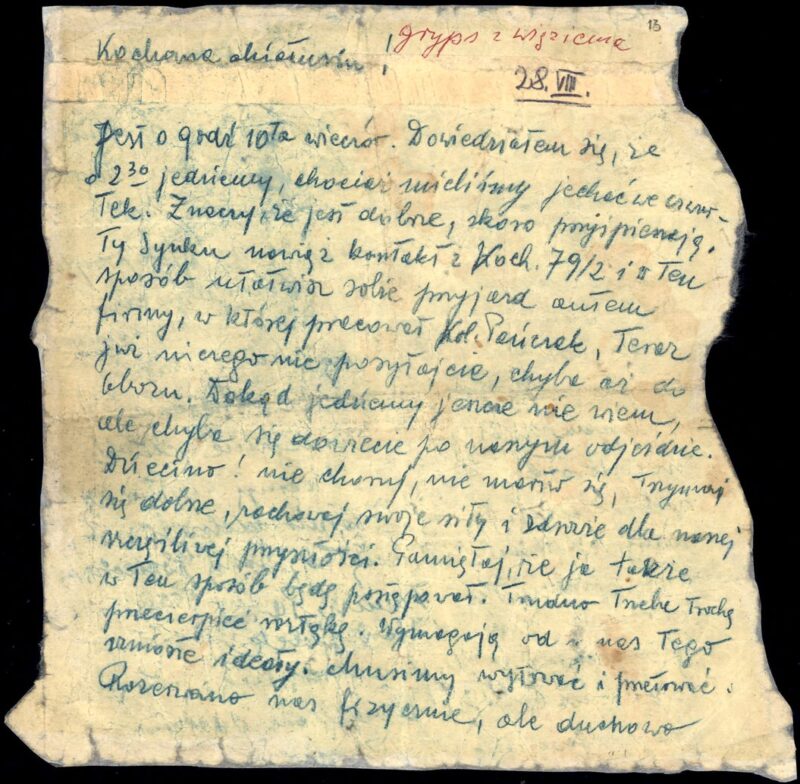 13
Kochana Mamusiu! gryps z więzienia
28. VIII.
Jest o godź 10ta wieczór. Dowiedziałem się, że
o 2³⁰ jedziemy, chociaż mieliśmy jechać we czwar-
tek. Znaczy, że jest dobrze, skoro przyspieszają.
Ty Synku nawiąż kontakt z Koch. 79/2 i w ten
sposób ułatwisz sobie przyjazd autem
firmy, w której pracował Kol. Pańczak, Teraz
już niczego nie posyłajcie, chyba aż do
Obozu. Dokąd jedziemy jeszcze nie wiem,
ale chyba się dowiecie po naszym odjeździe.
Dziecino! nie choruj, nie martw się, trzymaj
się dobrze, zachowaj swoje siły i zdrowie dla naszej
szczęśliwej przyszłości. Pamiętaj, że ja także
w ten sposób będę postępował. Trudno trzeba trochę
przecierpieć rozłąkę. Wymagają od nas tego
wzniosłe ideały. Musimy wytrwać i przetrwać.
Rozerwano nas fizycznie, ale duchowo